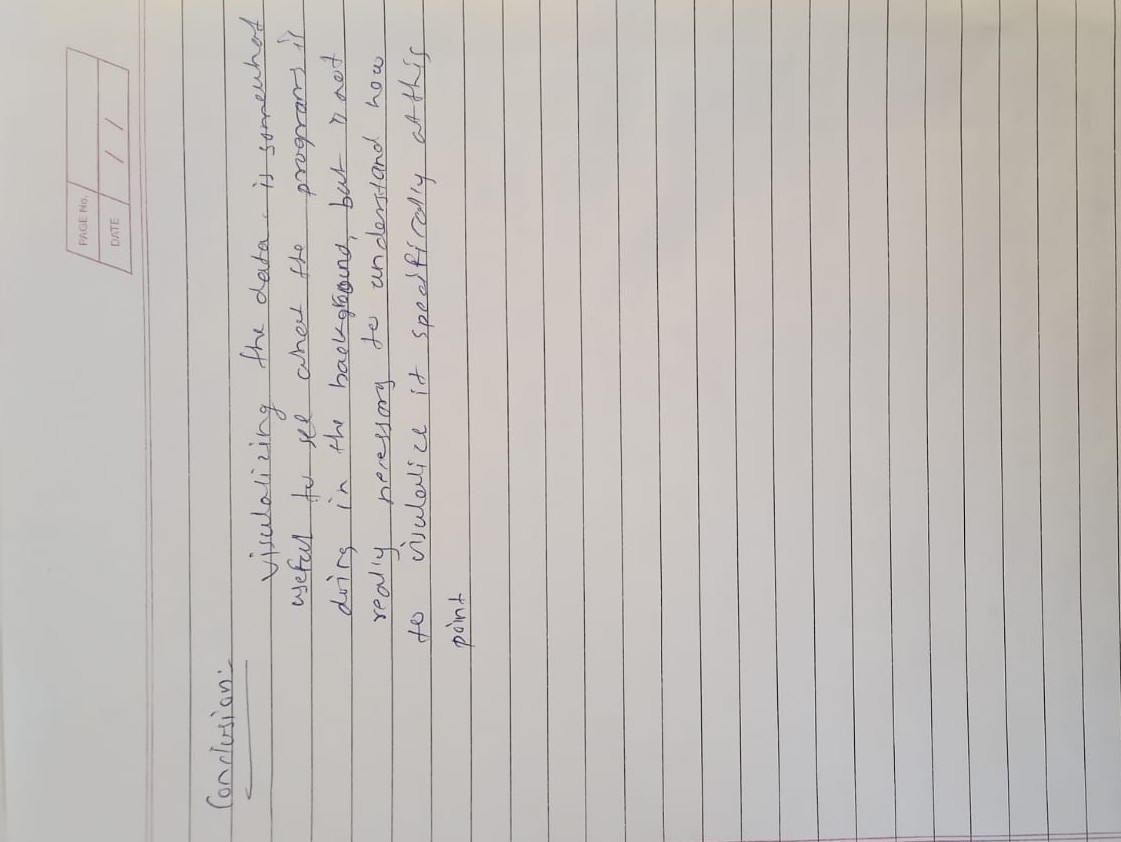 PAGE No.
DATE / /
Conclusion:-
visulalizing the data is somewhat
useful to see what the programs is
doing in the background, but is not
really necessary to understand how
to visulalize it specifically at this
point